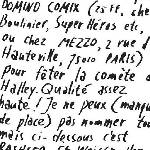 DOMINO COMIX (75 FF, che
Boulinier, Super Héros etc,
ou chez MEZZO, 2 rue d
Hauteville, 75010 PARIS)
pour fêter la comète d
Halley. Qualité assez
haute! Je ne peux (manque
de place) pas nommer tou
mais ci-dessous c'est